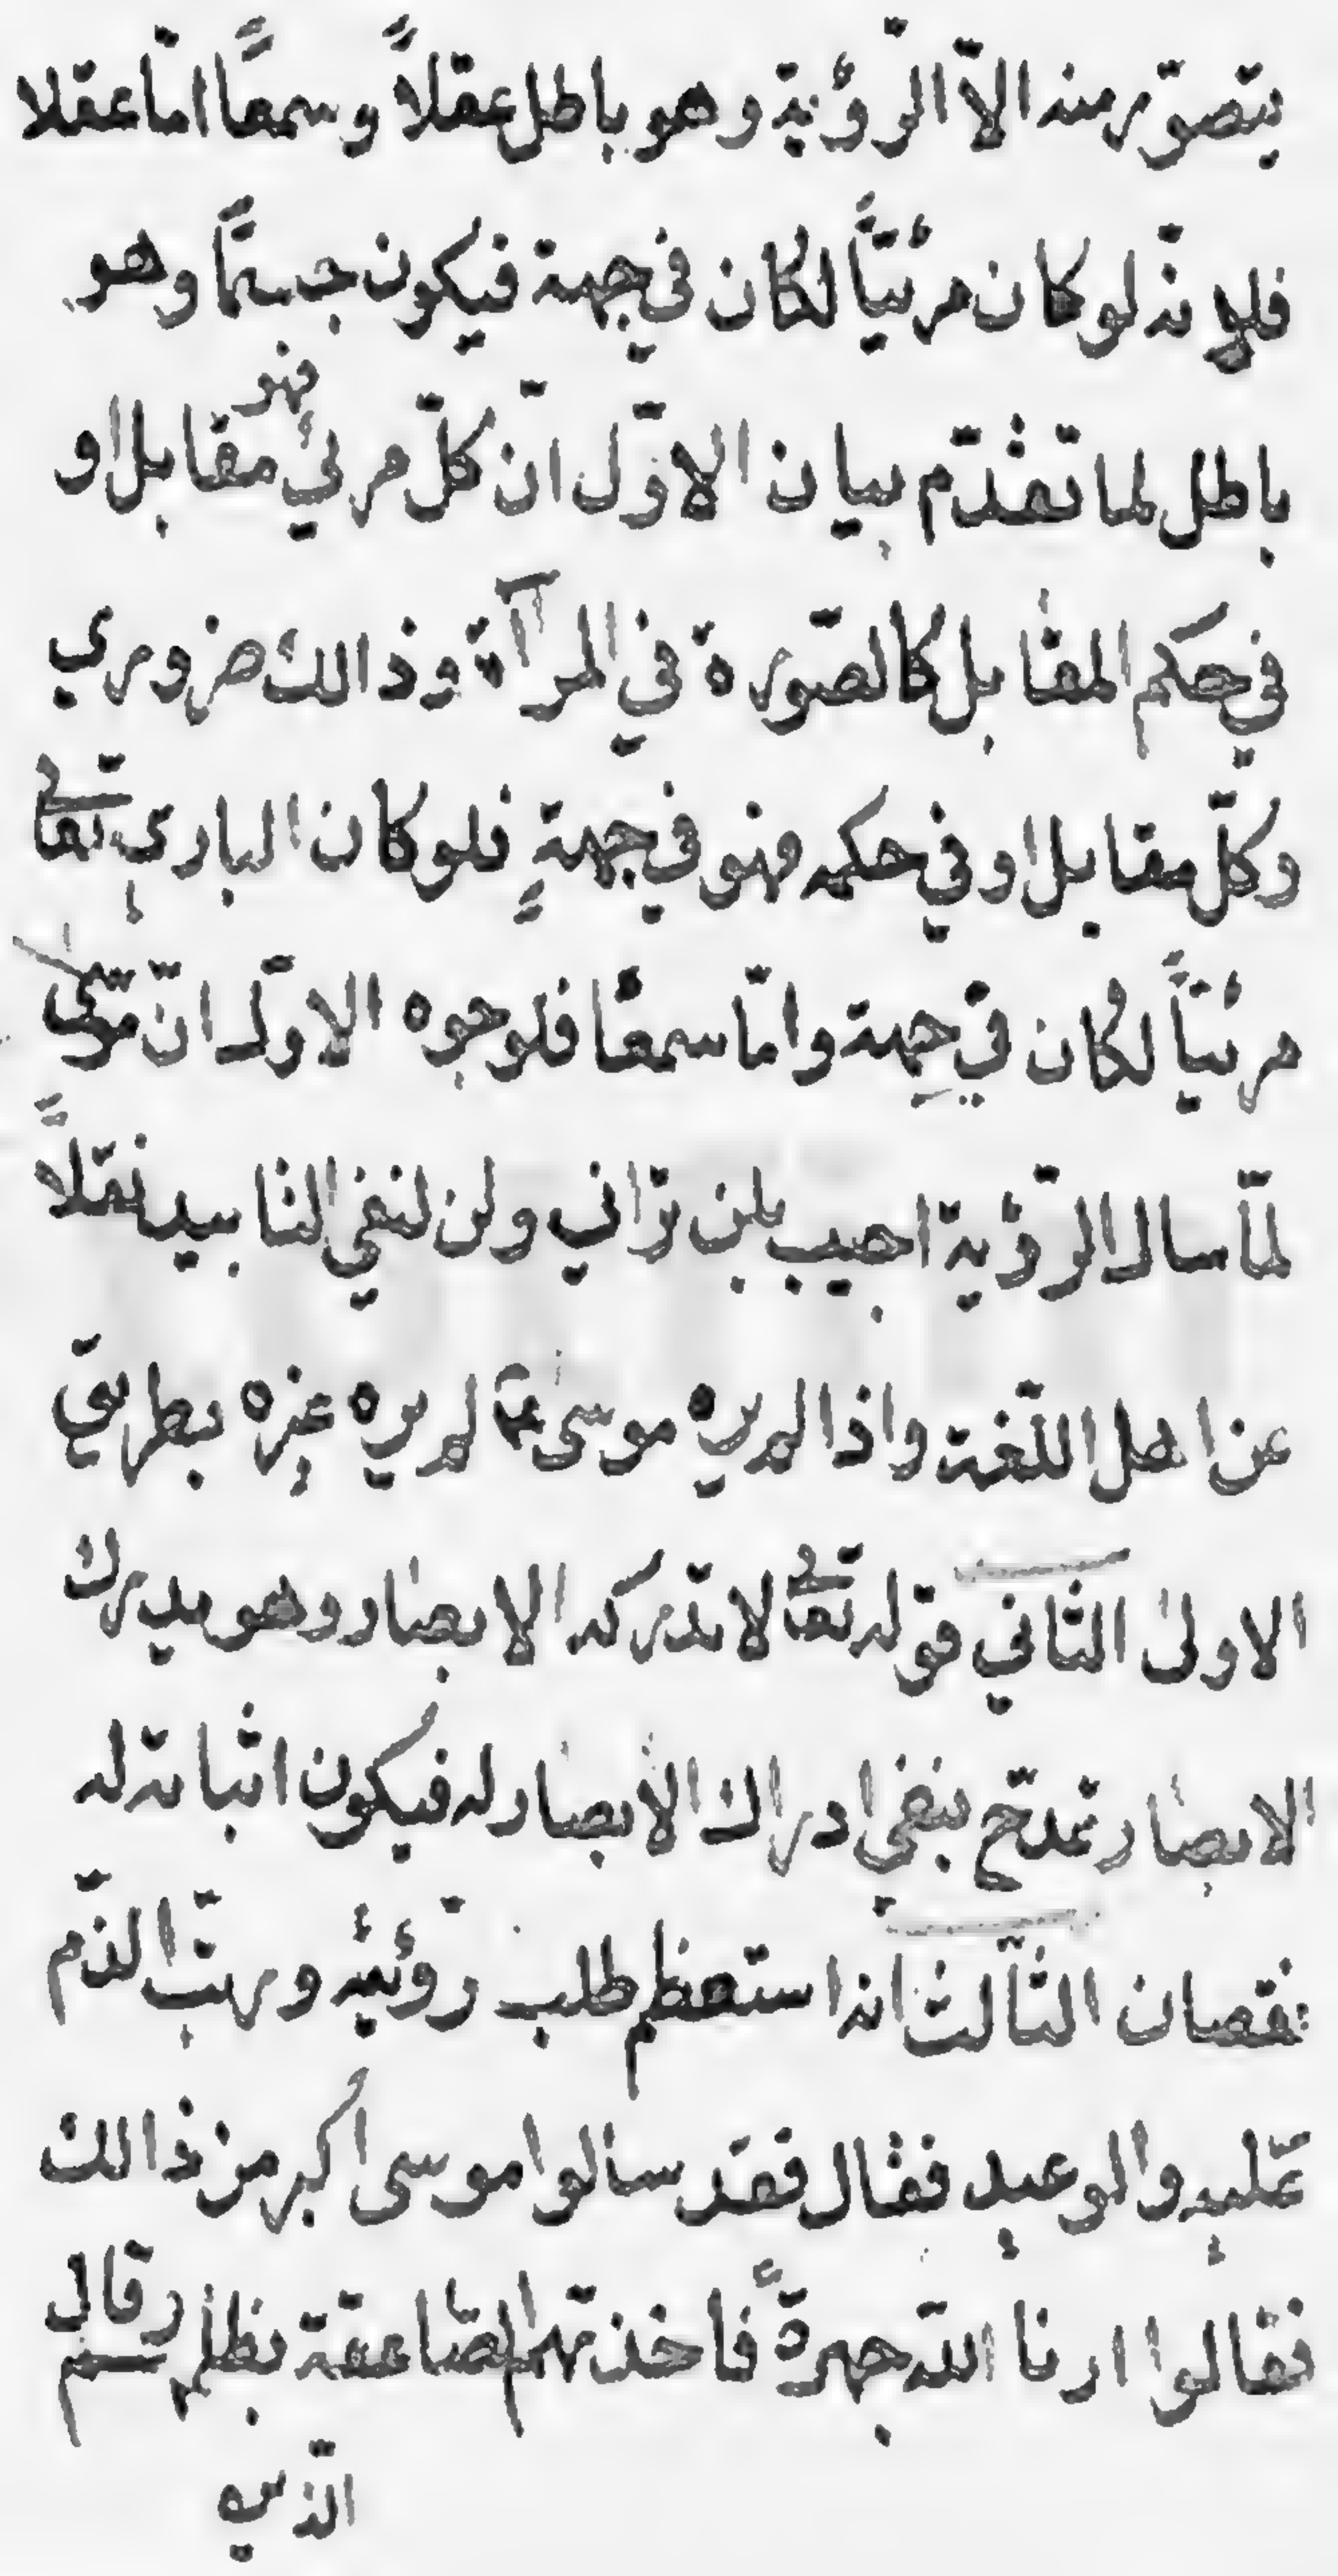 يتصوّر منه الاّ الرّؤية وهو باطل عقلاً وسمعاً امّا عقلا
فلانّه لو كان مرئيّاً لكان في جهة فيكون جسماً وهو
باطل لما تقدّم بيان الاوّل انّ كلّ مرئي فهو مقابل او
في حكم المقابل كالصّورة في المرآة وذالك ضروري
وكلّ مقابل او في حكمه فهو في جهةٍ فلو كان الباري تعالى
مرئيّاً لكان في جهة وامّا سمعا فلوجوه الاوّل انّ موسى
لمّا سال الرّؤية اجيب بلن تراني ولن لنفي التابيد نقلاً
عن اهل اللّغة واذا لم يره موسى ع لم يره غيره بطريق
الاولى الثّاني قوله تعالى لا تدركه الابصار وهو يدرك
الابصار تمدّح بنفي ادراك الابصار له فيكون اثباته له
نقصان الثّالث انه استعظم طلب رؤيته ورتّب الذّم
عليه والوعيد فقال فقد سالوا موسى اكبر من ذالك
فقالوا ارنا اللّه جهرةً فاخذتهم الصّاعقة بظلمهم وقال
الّذين